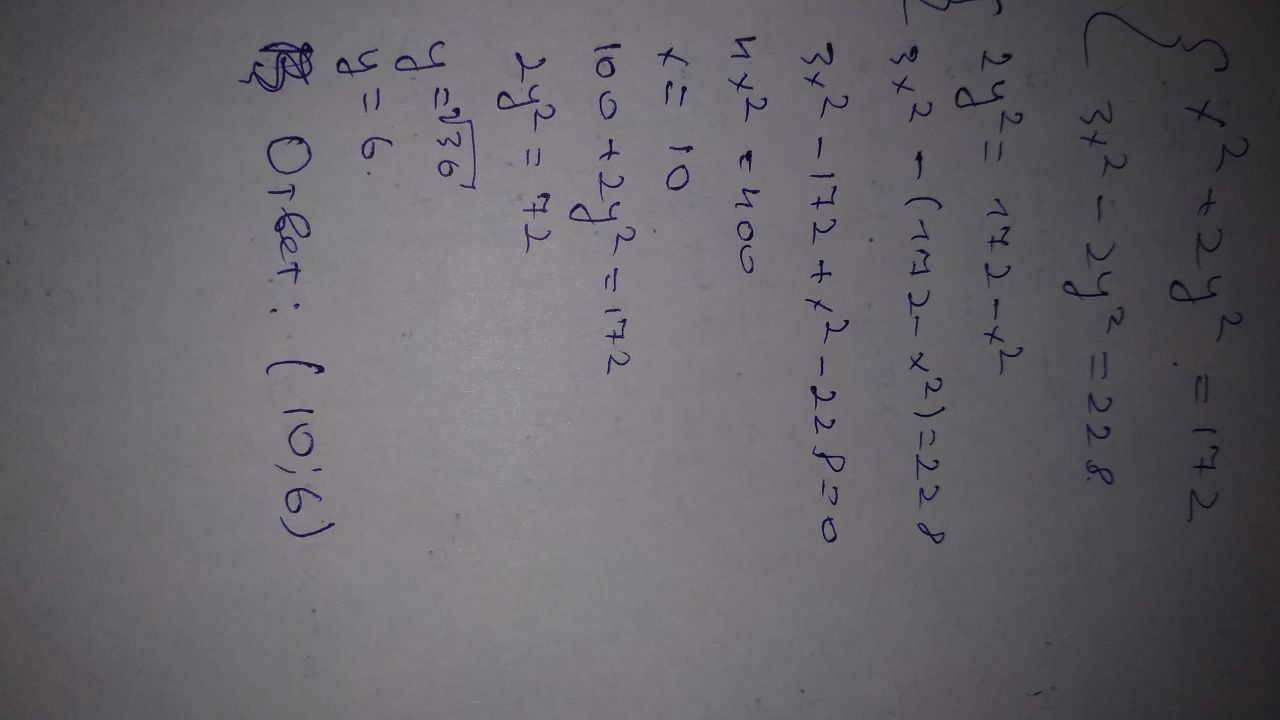 { x² + 2y² = 172
3x² - 2y² = 228
{ 2y² = 172 - x²
3x² - (172 - x²) = 228
3x² - 172 + x² - 228 = 0
4x² = 400
x = 10
100 + 2y² = 172
2y² = 72
y = ²√36
y = 6
Ответ: (10; 6)